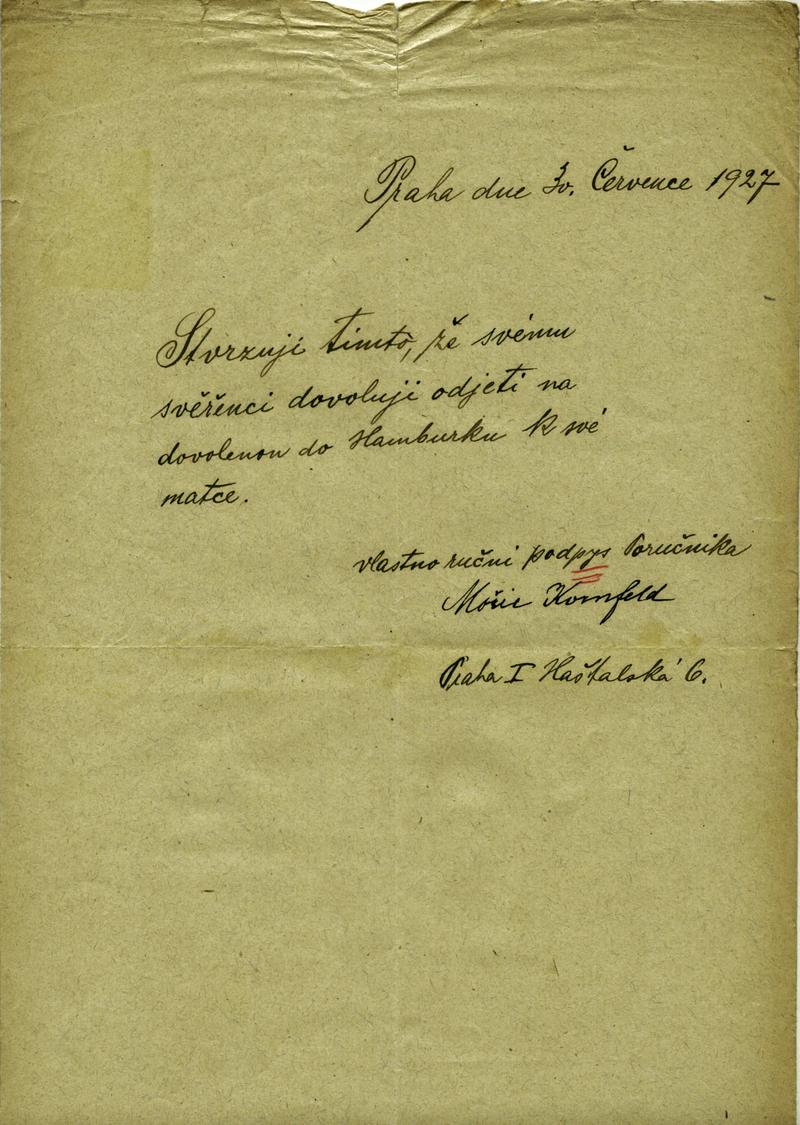 Praha dne 30. Července 1927
Stvrzuji timto, že svému
svěřenci dovoluji odjeti na
dovolenou do Hamburku k své
matce.
vlastnoruční podpys Poručníka
Móric Kornfeld
Praha I Haštalská 6.